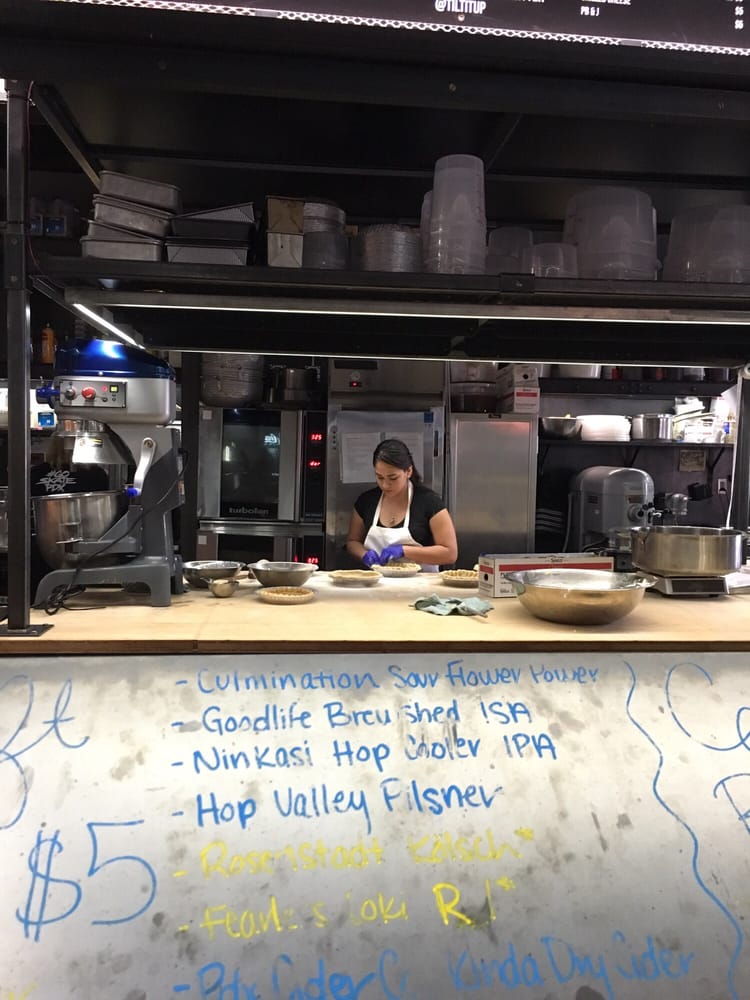 @TILTITUP
PB & J
$5
$6
turbofan
#GO
SKATE
PDX
- Culmination Sour Flower Power
- Goodlife Brewshed ISA
- Ninkasi Hop Cooler IPA
- Hop Valley Pilsner
$5
- Rosenstadt Kölsch*
- Loki
- Pdx Cider Co Kinda Dry Cider